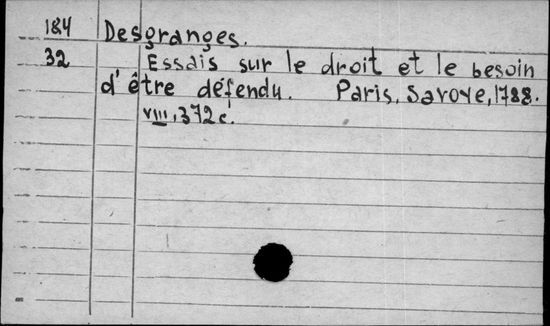 184 Desgranges.
32 Essais sur le droit et le besoin
d'être défendu. Paris, Savoye, 1788.
VIII, 372 c.